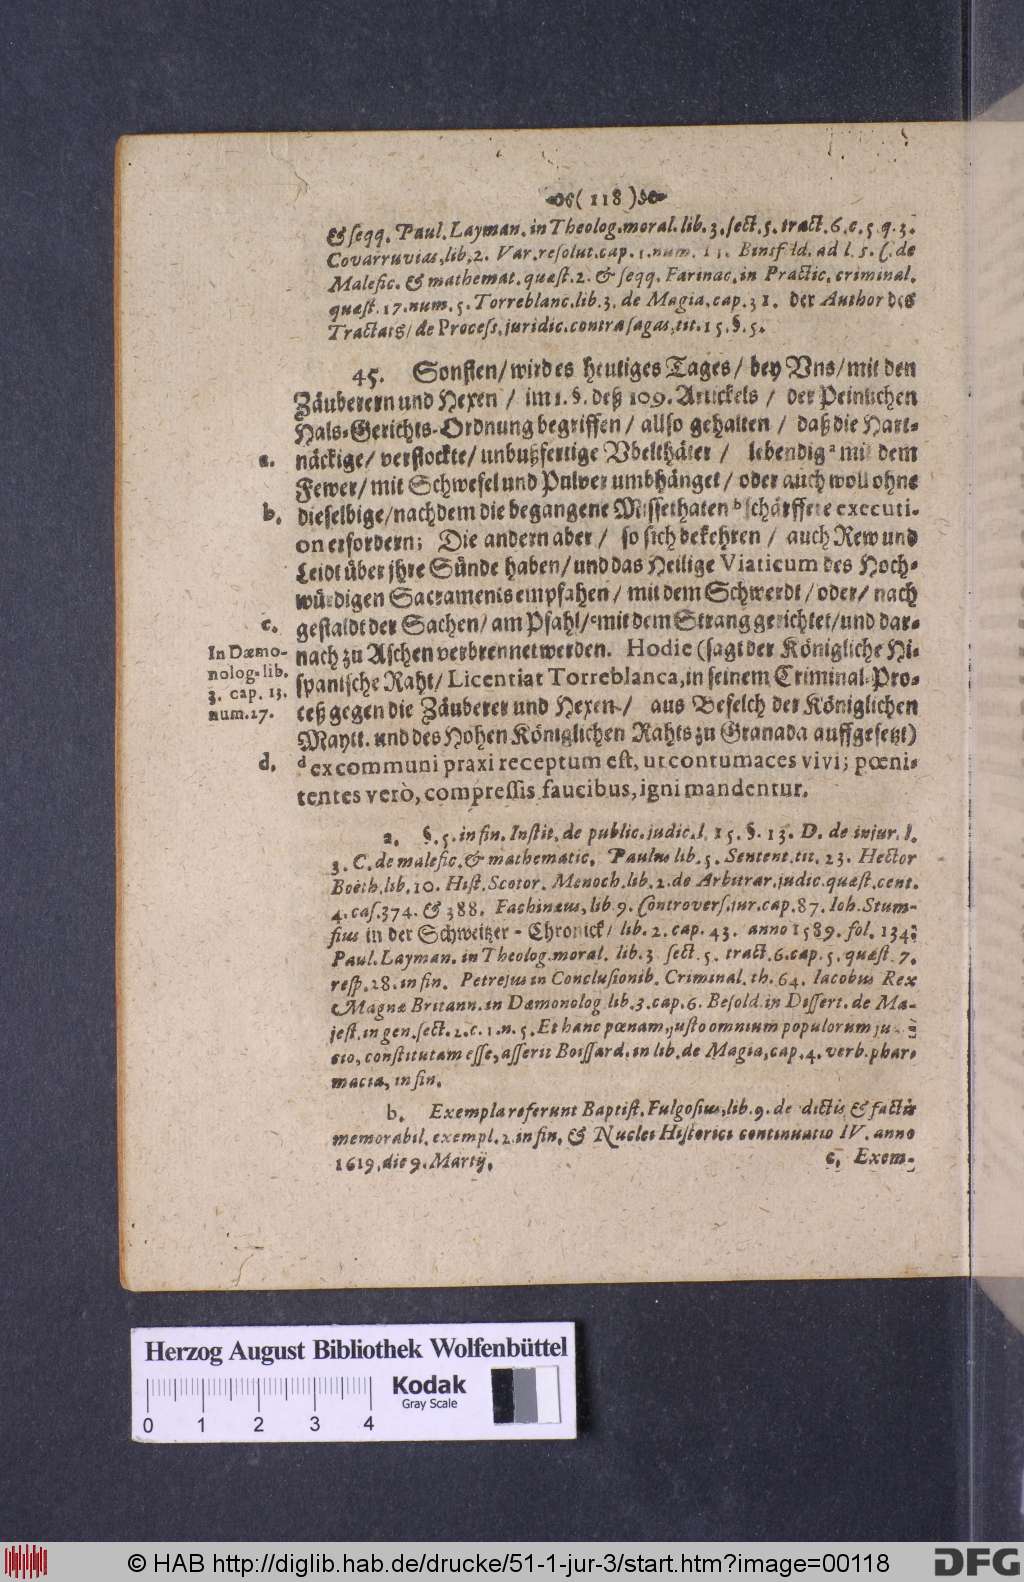 ( 118 )
& seqq. Paul. Layman. in Theolog. moral. lib. 3. sect. 5. tract. 6. c. 5. q. 3.
Covarruvias, lib. 2. Var. resolut. cap. 1. num. 11. Binsfeld. ad l. 5. C. de
Malefic. & mathemat. quæst. 2. & seqq. Farinac. in Practic. criminal.
quæst. 17. num. 5. Torreblanc. lib. 3. de Magia, cap. 31. der Author des
Tractats / de Process. juridic. contra sagas, tit. 15. §. 5.
45. Sonsten / wird es heutiges Tages / bey Vns / mit den
Zäuberern und Hexen / im 1. §. deß 109. Artickels / der Peinlichen
Hals-Gerichts-Ordnung begriffen / allso gehalten / daß die Hart-
a. näckige / verstockte / unbußfertige Vbelthäter / lebendig a mit dem
Fewer / mit Schwefel und Pulver umbhänget / oder auch woll ohne
b. dieselbige / nachdem die begangene Missethaten b schärffere executi-
on erfordern; Die andern aber / so sich bekehren / auch Rew und
Leidt über jhre Sünde haben / und das Heilige Viaticum des Hoch-
würdigen Sacraments empfahen / mit dem Schwerdt / oder / nach
c. gestaldt der Sachen / am Pfahl / c mit dem Strang gerichtet / und dar-
nach zu Aschen verbrennet werden. Hodie (sagt der Königliche Hi-
spanische Raht / Licentiat Torreblanca, in seinem Criminal-Pro-
ceß gegen die Zäuberer und Hexen / aus Befelch der Königlichen
Maytt. und des Hohen Königlichen Rahts zu Granada auffgesetzt)
In Dæmo-
nolog. lib.
3. cap. 13.
num. 17.
d. d ex communi praxi receptum est, ut contumaces vivi; pœni-
tentes verò, compressis faucibus, igni mandentur.
a. §. 5. in fin. Instit. de public. judic. l. 15. §. 13. D. de injur. l.
3. C. de malefic. & mathematic. Paulus lib. 5. Sentent. tit. 23. Hector
Boëth. lib. 10. Hist. Scotor. Menoch. lib. 2. de Arbitrar. judic. quæst. cent.
4. cas. 374. & 388. Fachinæus, lib. 9. Controvers. jur. cap. 87. Ioh. Stum-
fius in der Schweitzer-Chronick / lib. 2. cap. 43. anno 1589. fol. 134.
Paul. Layman. in Theolog. moral. lib. 3. sect. 5. tract. 6. cap. 5. quæst. 7.
resp. 28. in fin. Petrejus in Conclusionib. Criminal. th. 64. Iacobus Rex
Magnæ Britann. in Dæmonolog. lib. 3. cap. 6. Besold. in Dissert. de Ma-
jest. in gen. sect. 2. c. 1. n. 5. Et hanc pœnam, justo omnium populorum
cio, constitutam esse, asserit Boissard. in lib. de Magia, cap. 4. verb. phar-
macia, in fin.
b. Exempla referunt Baptist. Fulgosius, lib. 9. de dictis & factis
memorabil. exempl. 2. in fin. & Nuclei Historici continuatio IV. anno
1619. die 9. Martij.
c. Exem-
Herzog August Bibliothek Wolfenbüttel
Kodak
Gray Scale
0 1 2 3 4
© HAB http://diglib.hab.de/drucke/51-1-jur-3/start.htm?image=00118
DFG